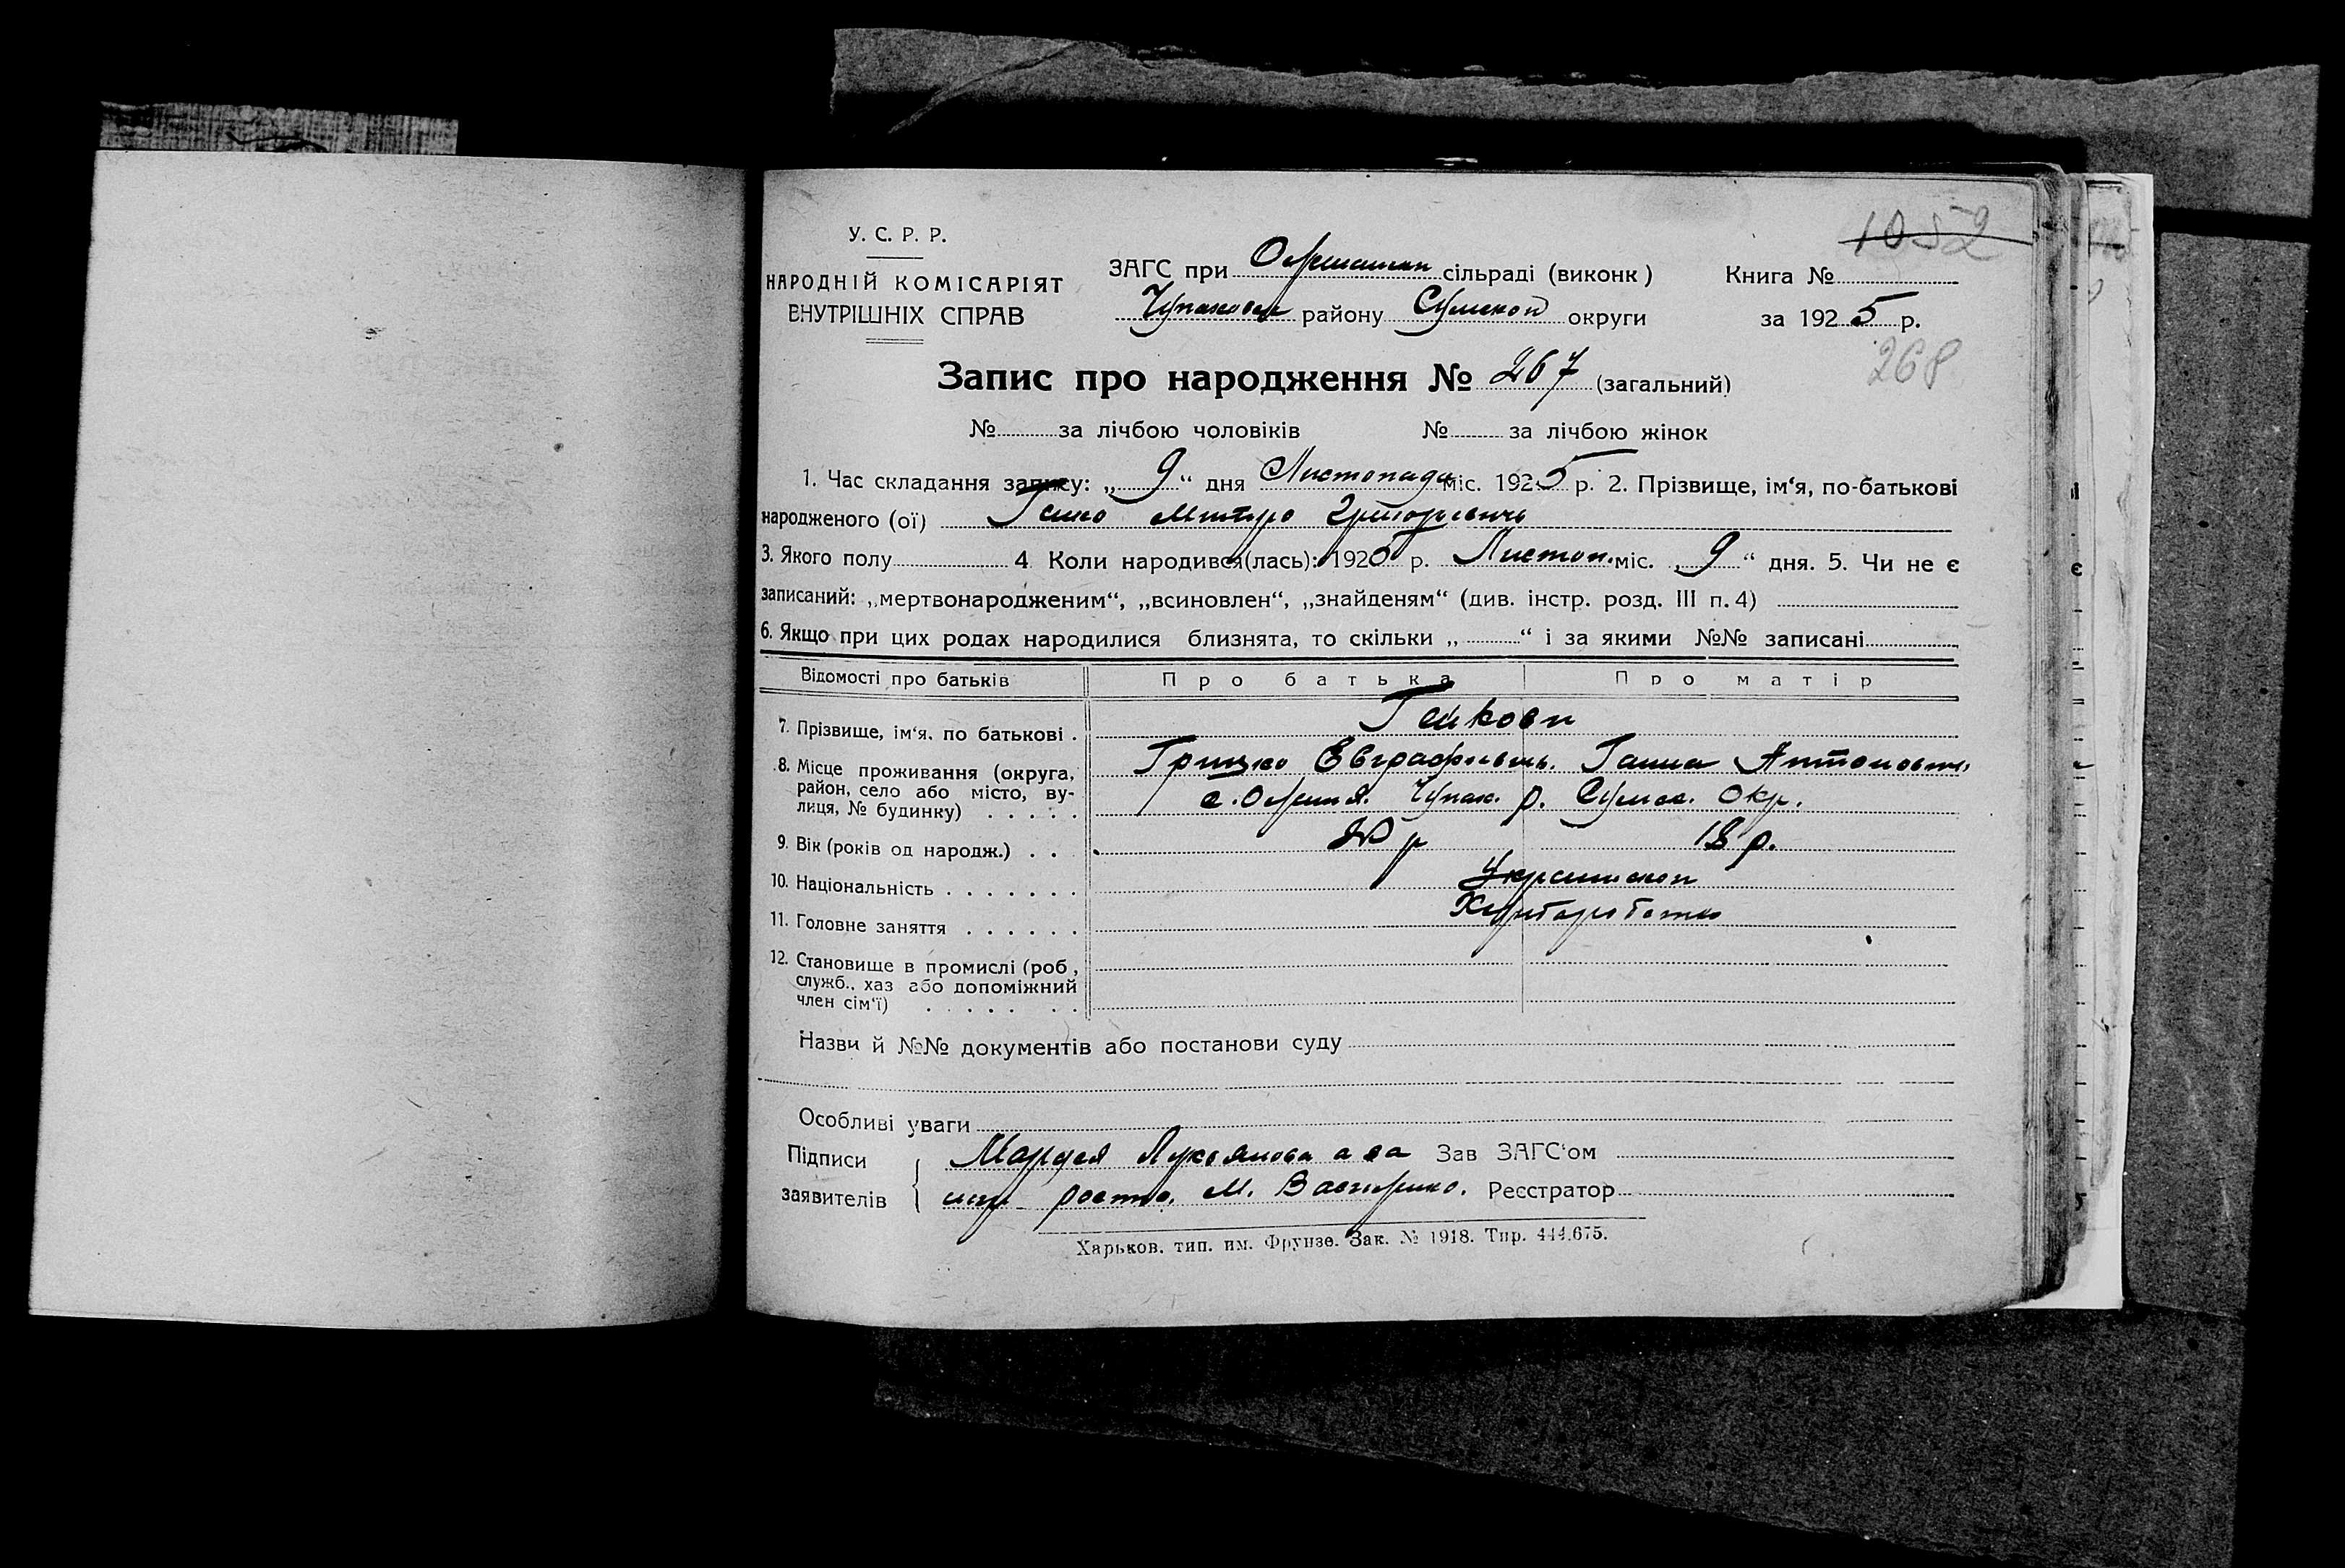 1052
У. С. Р. Р.
НАРОДНІЙ КОМІСАРІЯТ
ВНУТРІШНІХ СПРАВ
ЗАГС при сільраді (виконк)
Чупаховск району Сумской округи
Книга №
за 1925 р.
268
Запис про народження № 267 (загальний)
№ за лічбою чоловіків № за лічбою жінок
1. Час складання запису: „ 9 “ дня Листопада міс. 1925 р. 2. Прізвище, ім‘я, по-батькові
народженого (ої) Гейко Митро Григорьевичь
3. Якого полу 4. Коли народився(лась): 1925 р. Листоп. міс. „ 9 “ дня. 5. Чи не є
записаний: „мертвонародженим“, „всиновлен“, „знайденям“ (див. інстр. розд. III п. 4)
6. Якщо при цих родах народилися близнята, то скільки „ “ і за якими №№ записані
Відомості про батьків Про батька Про матір
7. Прізвище, ім‘я, по батькові . Гейкови
Грицко Евграфиевичь. Ганна Антоновна
8. Місце проживання (округа,
район, село або місто, ву-
лиця, № будинку) . . . . . с. Чупах. р. Сумск. Окр.
9. Вік (років од народж.) . . 20 р 18 р.
10. Національність . . . . . . .
11. Головне заняття . . . . . . Хліборобство
12. Становище в промислі (роб.,
служб., хаз або допоміжний
член сім‘ї) . . . . . . .
Назви й №№ документів або постанови суду
Особливі уваги
Підписи
заявителів
Лукьянова а за Зав ЗАГС‘ом
М. Реєстратор
Харьков. тип. им. Фрунзе. Зак. № 1918. Тир. 444.675.